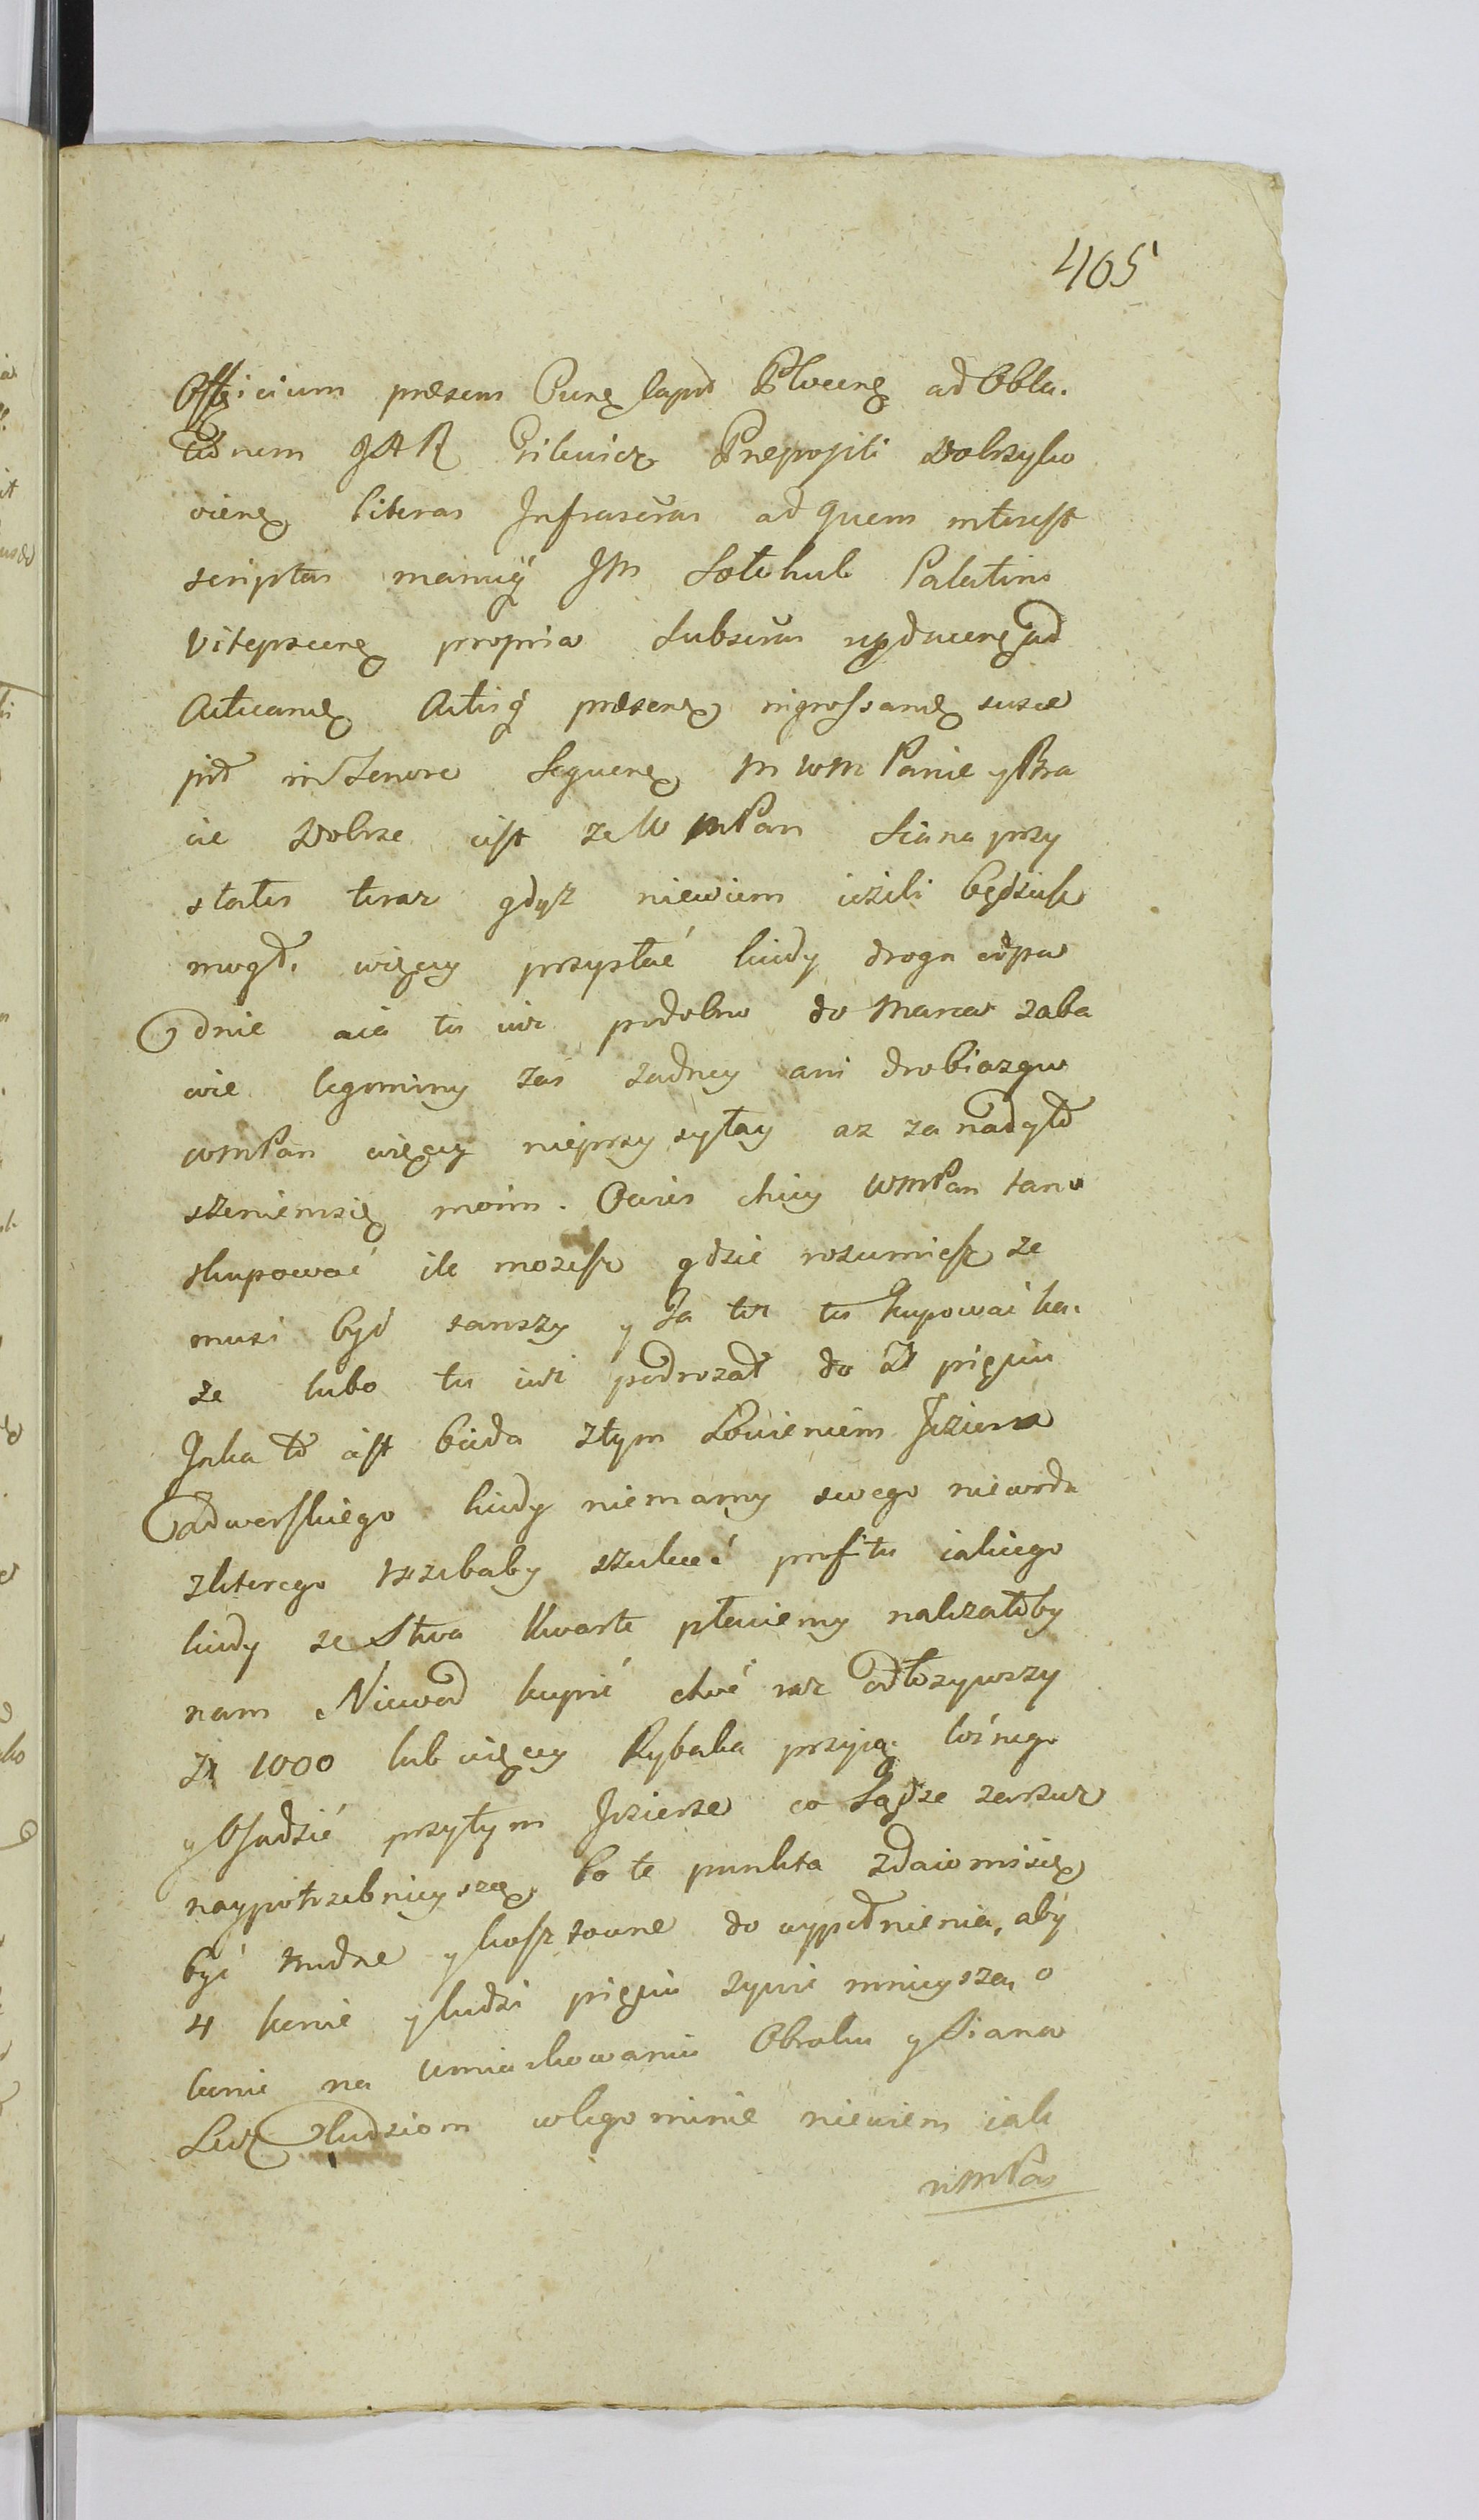 405
Officium præsens Cune Capit Płocene ad Obla.
tionem JAR Gilewicz Præpositi Dobrzyko
viene Literas Infrascras ad quem interest
scriptas manuq JM Sołohub Palatini
Vitepscene propria Subscras reproducene ad
Acticand Actisq præsene ingrossand susce
pit in Tenore Sequene M WM Panie y Bra
cie Dobrze iest ze W MPan Siana przy
stałes teraz gdyż niewiem ieżeli będziesz
mogł. więcey przysłać kiedy droga odpa
dnie aia tu iuz podobno do Marca zaba
wie legominy zas zadney ani drobiazgu
WMPan więcey nieprzysyłay az za nadgło
szeniemsię moim. Owies chciey WMPan tano
skupować ile mozesz gdzie rozumiesz ze
musi być tanszy y Ja tez tu kupować ka.
ze lubo tu iuż podrozał do Zł pięciu
Jaka to iest bieda ztym Łowieniem Jeziora
adwerskiego kiedy niemamy swego niewodu
zktorego trzebaby szukać profitu iakiego
kiedy ze Stwa Kwarte płaciemy nalezałoby
nam Niewod kupić choć raz odłozywszy
Zł 1000 lub więcey Rybaka przyią. loźnego
y Osadzić przytym Jezierze co Sądze zarzecz
naypotrzebnieyszą. bo te punkta zdaiomisię
być trudne y kosztowne do wypełnienia, aby
4 konie y ludzi pięciu zywi mnieysza, o
konie na umiarkowaniu Obroku y Siana
Lecz ludziom wlegominie niewiem iak
WMPan